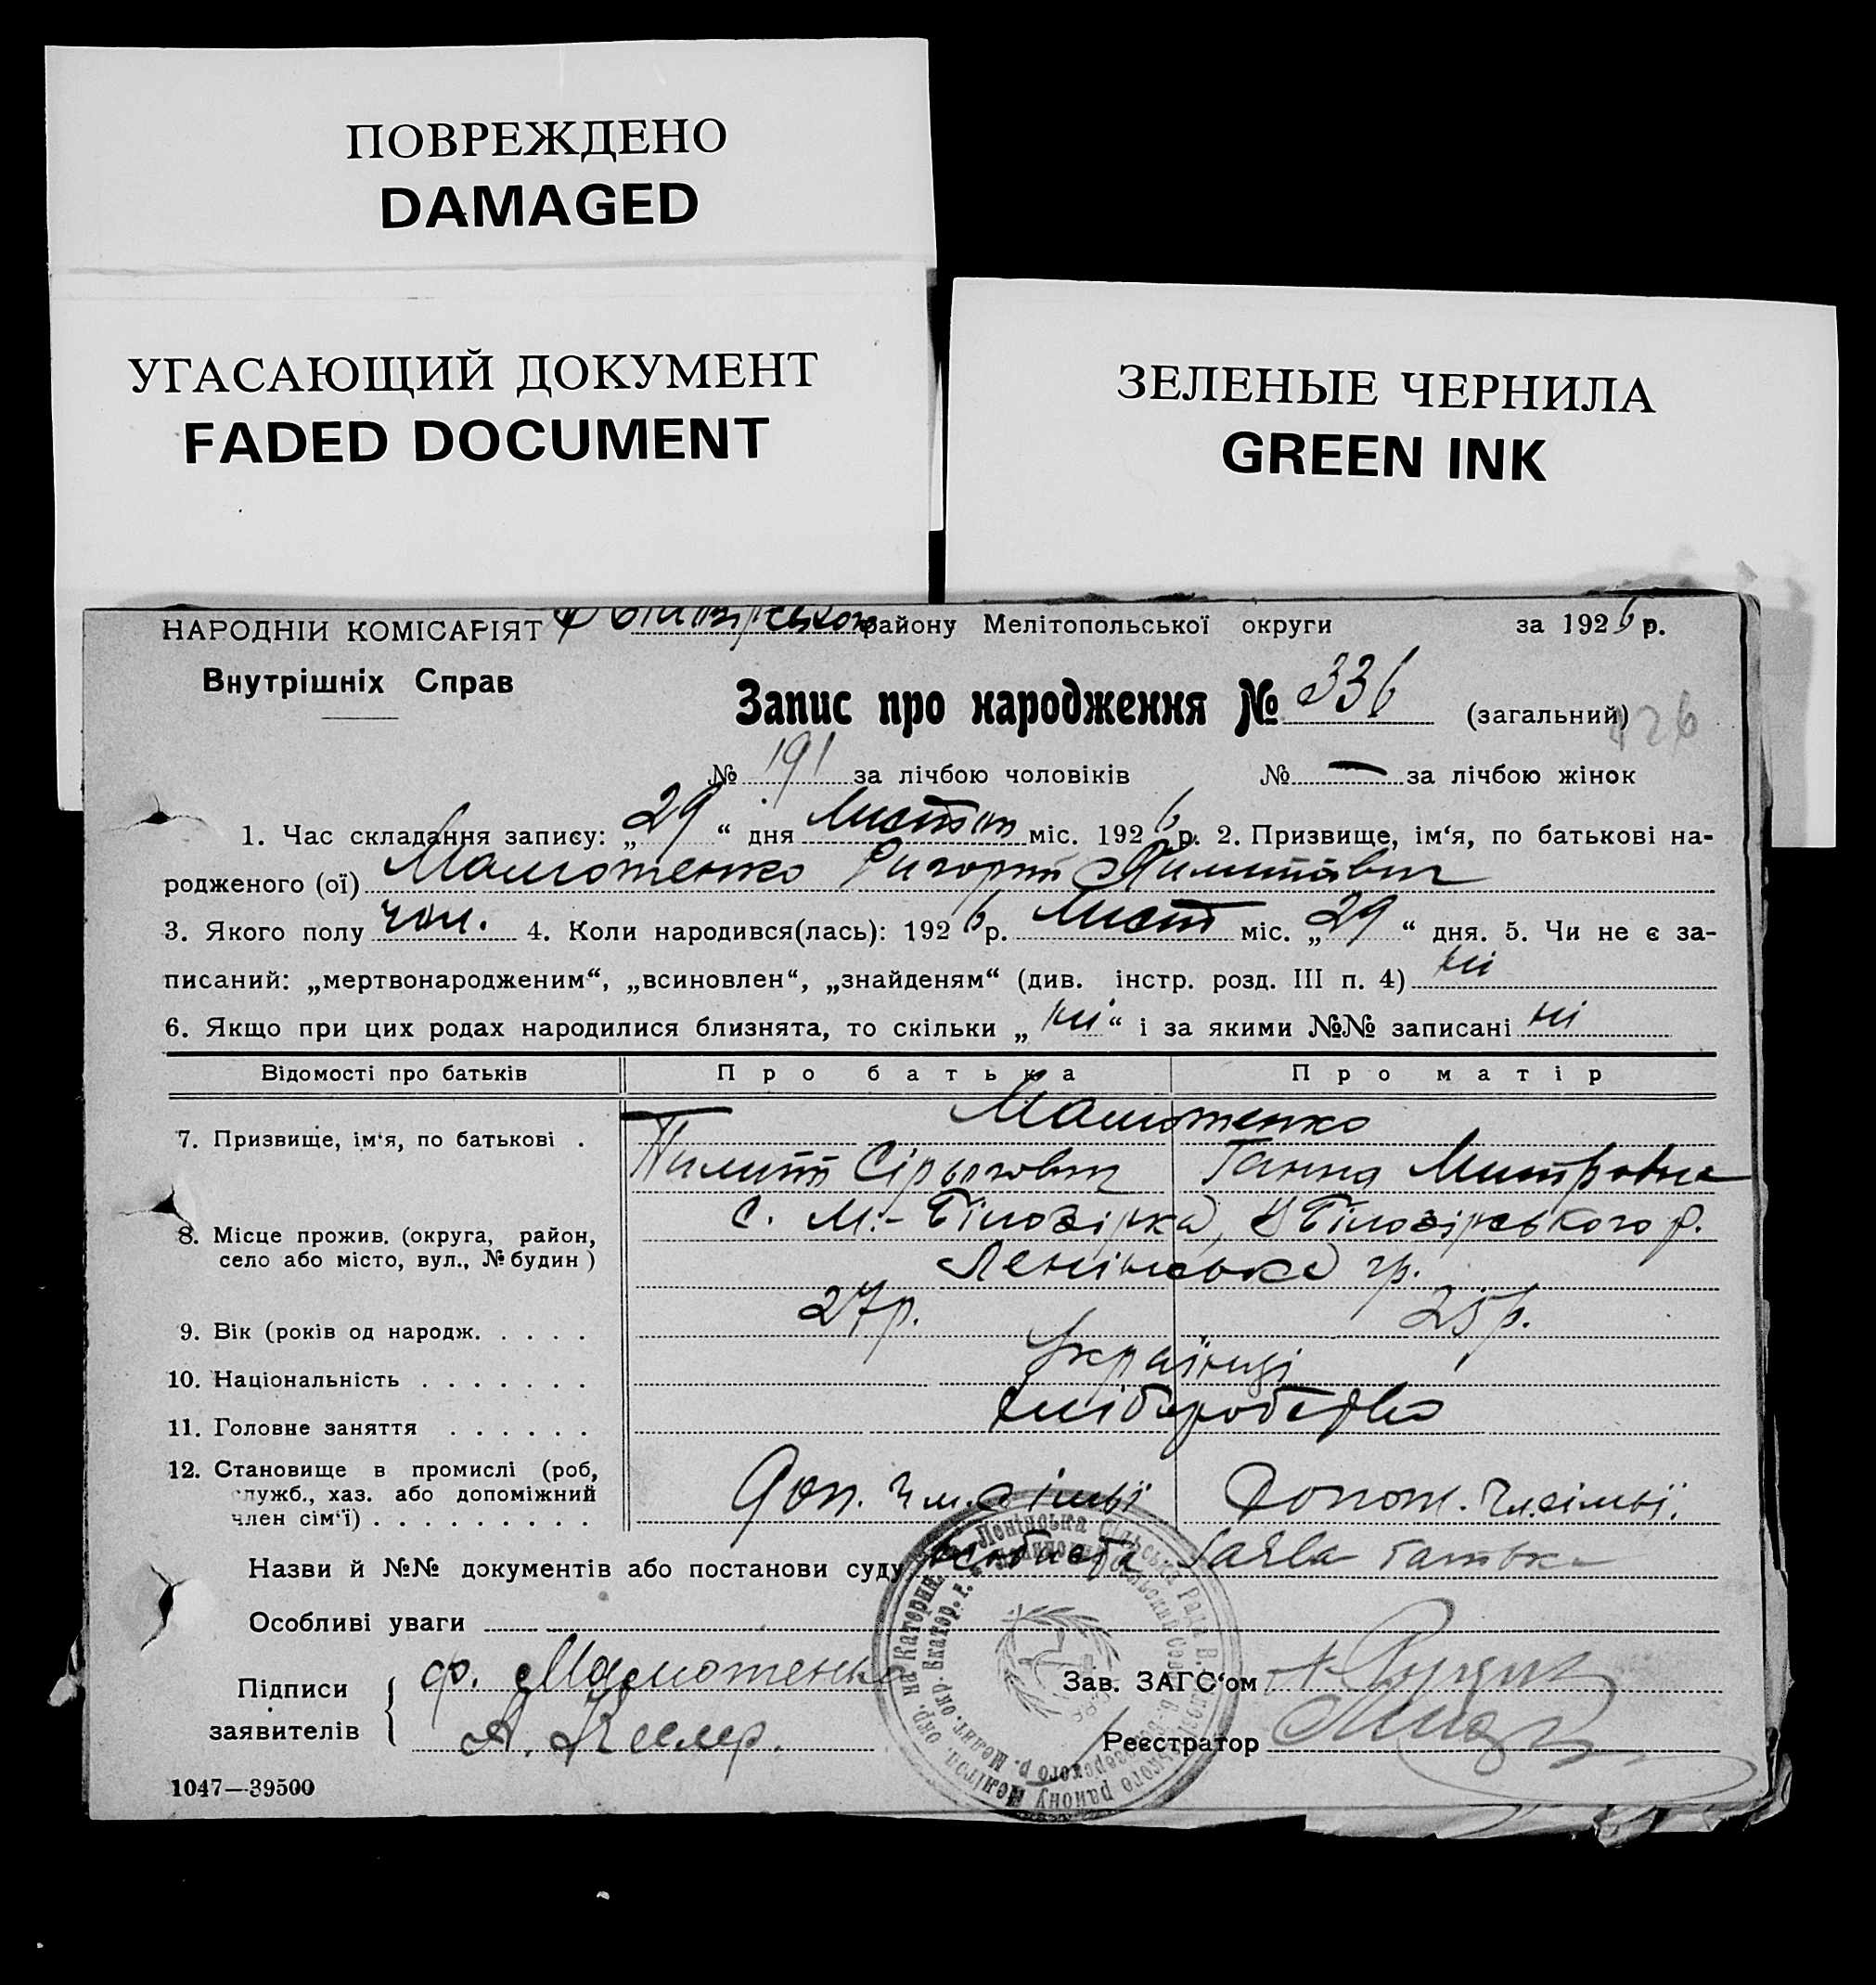 ПОВРЕЖДЕНО
DAMAGED
УГАСАЮЩИЙ ДОКУМЕНТ
FADED DOCUMENT
ЗЕЛЕНЫЕ ЧЕРНИЛА
GREEN INK
НАРОДНІЙ КОМІСАРІЯТ району Мелітопольської округи за 1926 р.
Внутрішніх Справ
Запис про народження № 336 (загальний)
126
№ 191 за лічбою чоловіків № — за лічбою жінок
1. Час складання запису: „29“ дня Листоп міс. 1926 р. 2. Призвище, ім‘я, по батькові на-
родженого (ої) Мамотенко Григорій
3. Якого полу чол. 4. Коли народився(лась): 1926 р. Лист міс. „29“ дня. 5. Чи не є за-
писаний: „мертвонародженим“, „всиновлен“, „знайденям“ (див. інстр. розд. III п. 4) ні
6. Якщо при цих родах народилися близнята, то скільки „ні“ і за якими №№ записані ні
Відомості про батьків Про батька Про матір
Мамотенко
7. Призвище, ім‘я, по батькові . Пилип Сірьгович Ганна Митровна
8. Місце прожив. (округа, район, с. М.-Білозірка, В Білозірського р.
село або місто, вул., № будин ) Ленінська гр.
9. Вік (років од народж. . . . . 27р. 25р.
10. Національність . . . . . . . Українці
11. Головне заняття . . . . . . Хліборобство
12. Становище в промислі (роб, Доп. чл. сімьї Допом. чл. сімьї.
служб., хаз. або допоміжний
член сім‘ї) . . . . . . . . .
Назви й №№ документів або постанови суду особиста заява батька
Особливі уваги
Підписи ф. Мамотенко Зав. ЗАГС‘ом
заявителів А. Реєстратор
1047—39500